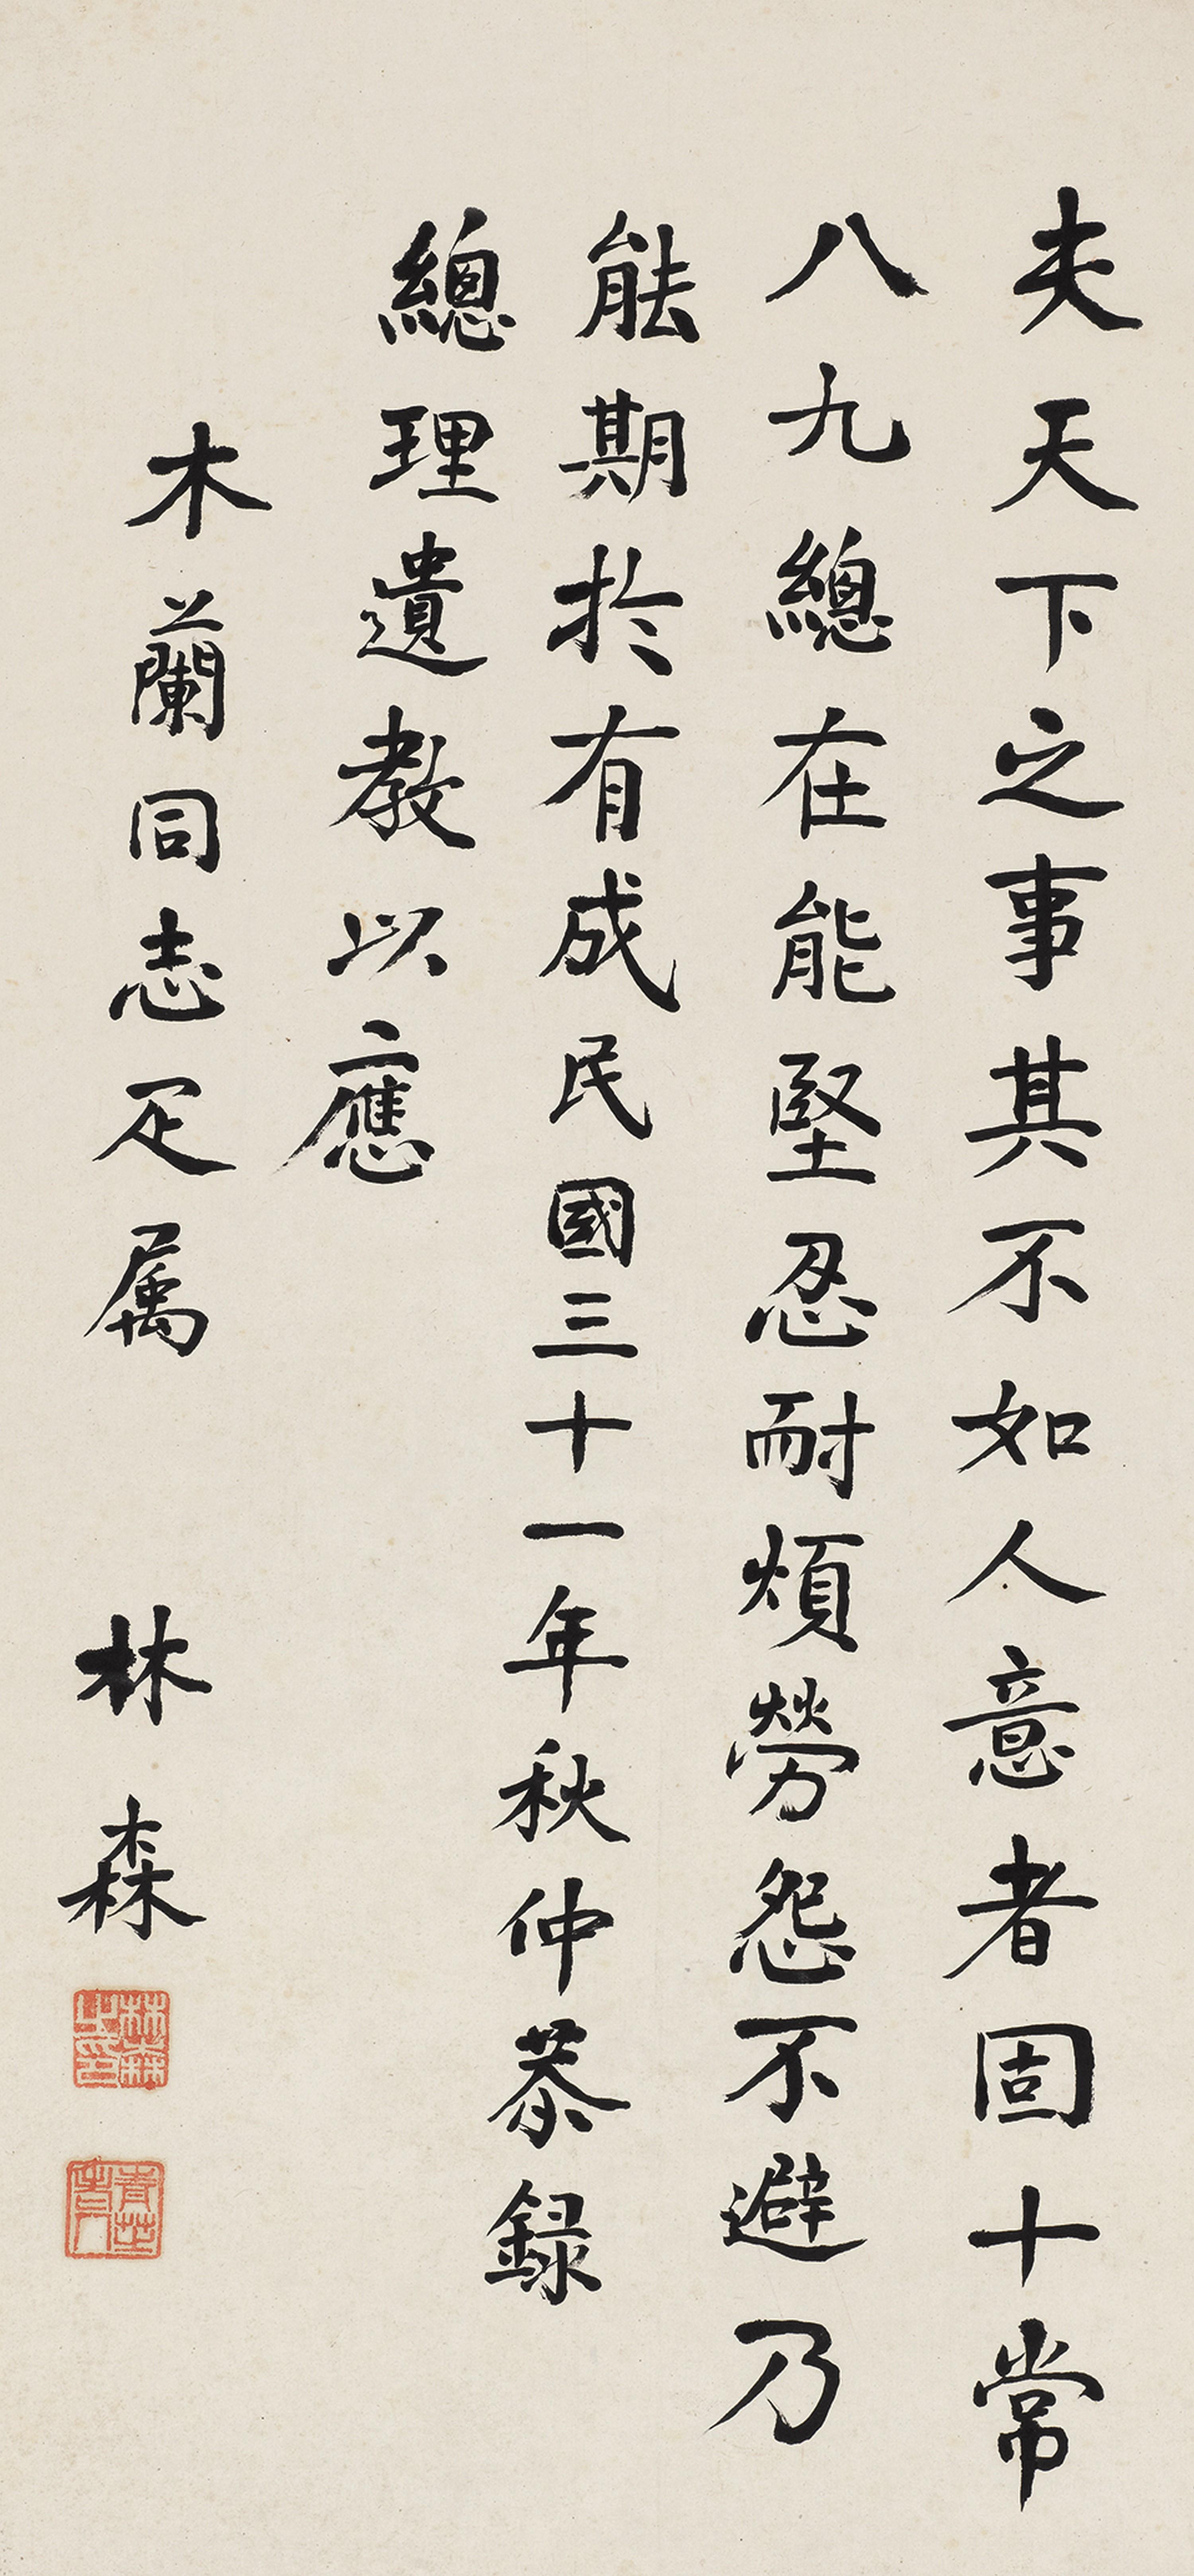 夫天下之事其不如人意者固十常
八九總在能堅忍耐煩勞怨不避乃
能期於有成民國三十一年秋仲恭錄
總理遺教以應
木蘭同志疋属 林森
林森之印
青芝老人